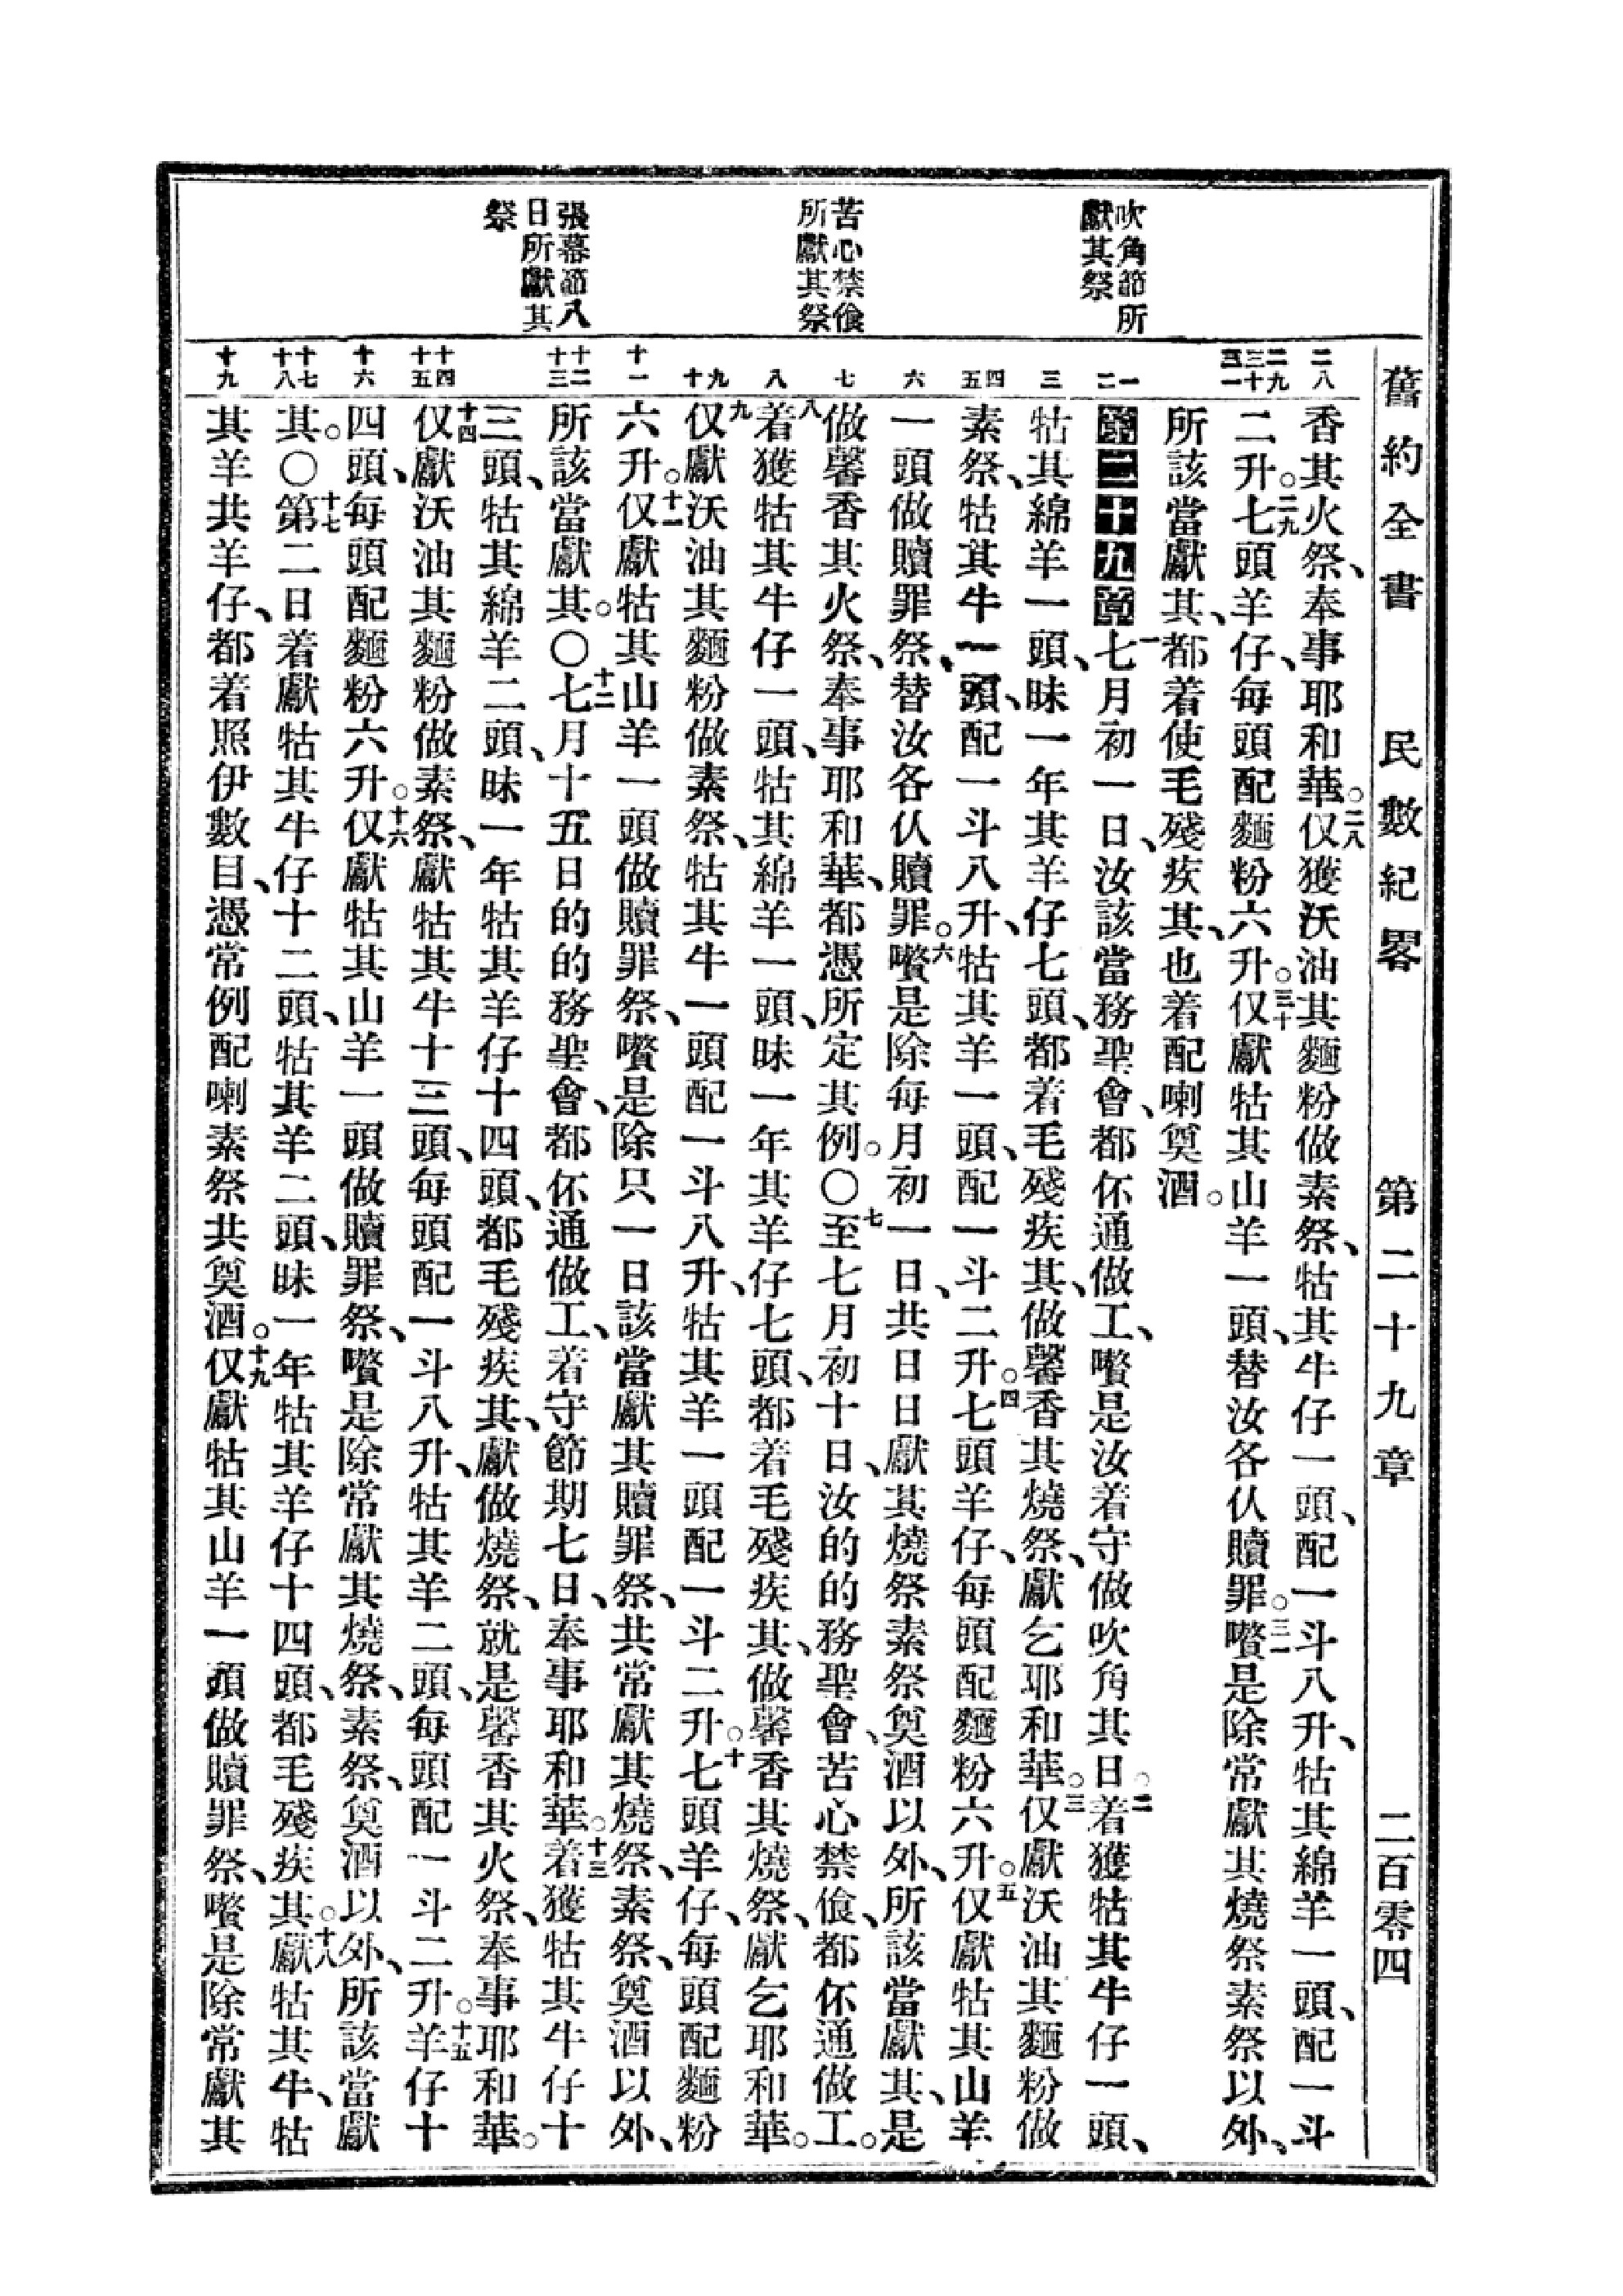 舊約全書　民數紀畧　第二十九章　二百零四
吹角節所
獻其祭
苦心禁飡
所獻其祭
張幕節八
日所獻其
祭
二八
二九
三十
三一
一
二
三
四
五
六
七
八
九
十
十一
十二
十三
十四
十五
十六
十七
十八
十九
香其火祭、奉事耶和華。二八仅獲沃油其麵粉做素祭、牯其牛仔一頭、配一斗八升、牯其綿羊一頭、配一斗
二升。二九七頭羊仔、每頭配麵粉六升。三十仅獻牯其山羊一頭、替汝各仈贖罪。三一嚽是除常獻其燒祭素祭以外、
所該當獻其、都着使毛殘疾其、也着配喇奠酒。
第二十九章 一七月初一日、汝該當務聖會、都伓通做工、嚽是汝着守做吹角其日。二着獲牯其牛仔一頭、
牯其綿羊一頭、昧一年其羊仔七頭、都着毛殘疾其、做馨香其燒祭、獻乞耶和華。三仅獻沃油其麵粉做
素祭、牯其牛一頭、配一斗八升、牯其羊一頭、配一斗二升。四七頭羊仔、每頭配麵粉六升。五仅獻牯其山羊
一頭做贖罪祭、替汝各仈贖罪。六嚽是除每月初一日、共日日獻其燒祭素祭奠酒以外、所該當獻其、是
做馨香其火祭、奉事耶和華、都憑所定其例。〇七至七月初十日、汝的的務聖會、苦心禁飡、都伓通做工。
八着獲牯其牛仔一頭、牯其綿羊一頭、昧一年其羊仔七頭、都着毛殘疾其、做馨香其燒祭、獻乞耶和華。
九仅獻沃油其麵粉做素祭、牯其牛一頭配一斗八升、牯其羊一頭配一斗二升。十七頭羊仔、每頭配麵粉
六升。十一仅獻牯其山羊一頭做贖罪祭、嚽是除只一日該當獻其贖罪祭、共常獻其燒祭、素祭、奠酒以外、
所該當獻其。〇十二七月十五日的的務聖會、都伓通做工、着守節期七日、奉事耶和華。十三着獲牯其牛仔十
三頭、牯其綿羊二頭、昧一年牯其羊仔十四頭、都毛殘疾其、獻做燒祭、就是馨香其火祭、奉事耶和華。
十四仅獻沃油其麵粉做素祭、獻牯其牛十三頭、每頭配一斗八升、牯其羊二頭、每頭配一斗二升。十五羊仔十
四頭、每頭配麵粉六升。十六仅獻牯其山羊一頭做贖罪祭、嚽是除常獻其燒祭、素祭、奠酒以外、所該當獻
其。〇十七第二日着獻牯其牛仔十二頭、牯其羊二頭、昧一年牯其羊仔十四頭、都毛殘疾其。十八獻牯其牛、牯
其羊共羊仔、都着照伊數目、憑常例配喇素祭共奠酒。十九仅獻牯其山羊一頭做贖罪祭、嚽是除常獻其